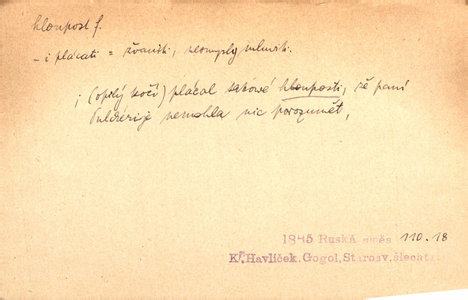 hloupost f.
- i plácati = žvaniti, nesmysly mluviti.
; (opilý kočí) plácal takové hlouposti, že paní
Pulcherije nemohla nic porozumět,
1845 Ruská směs 110.18
K. Havlíček. Gogol, Starosv. šlecht.